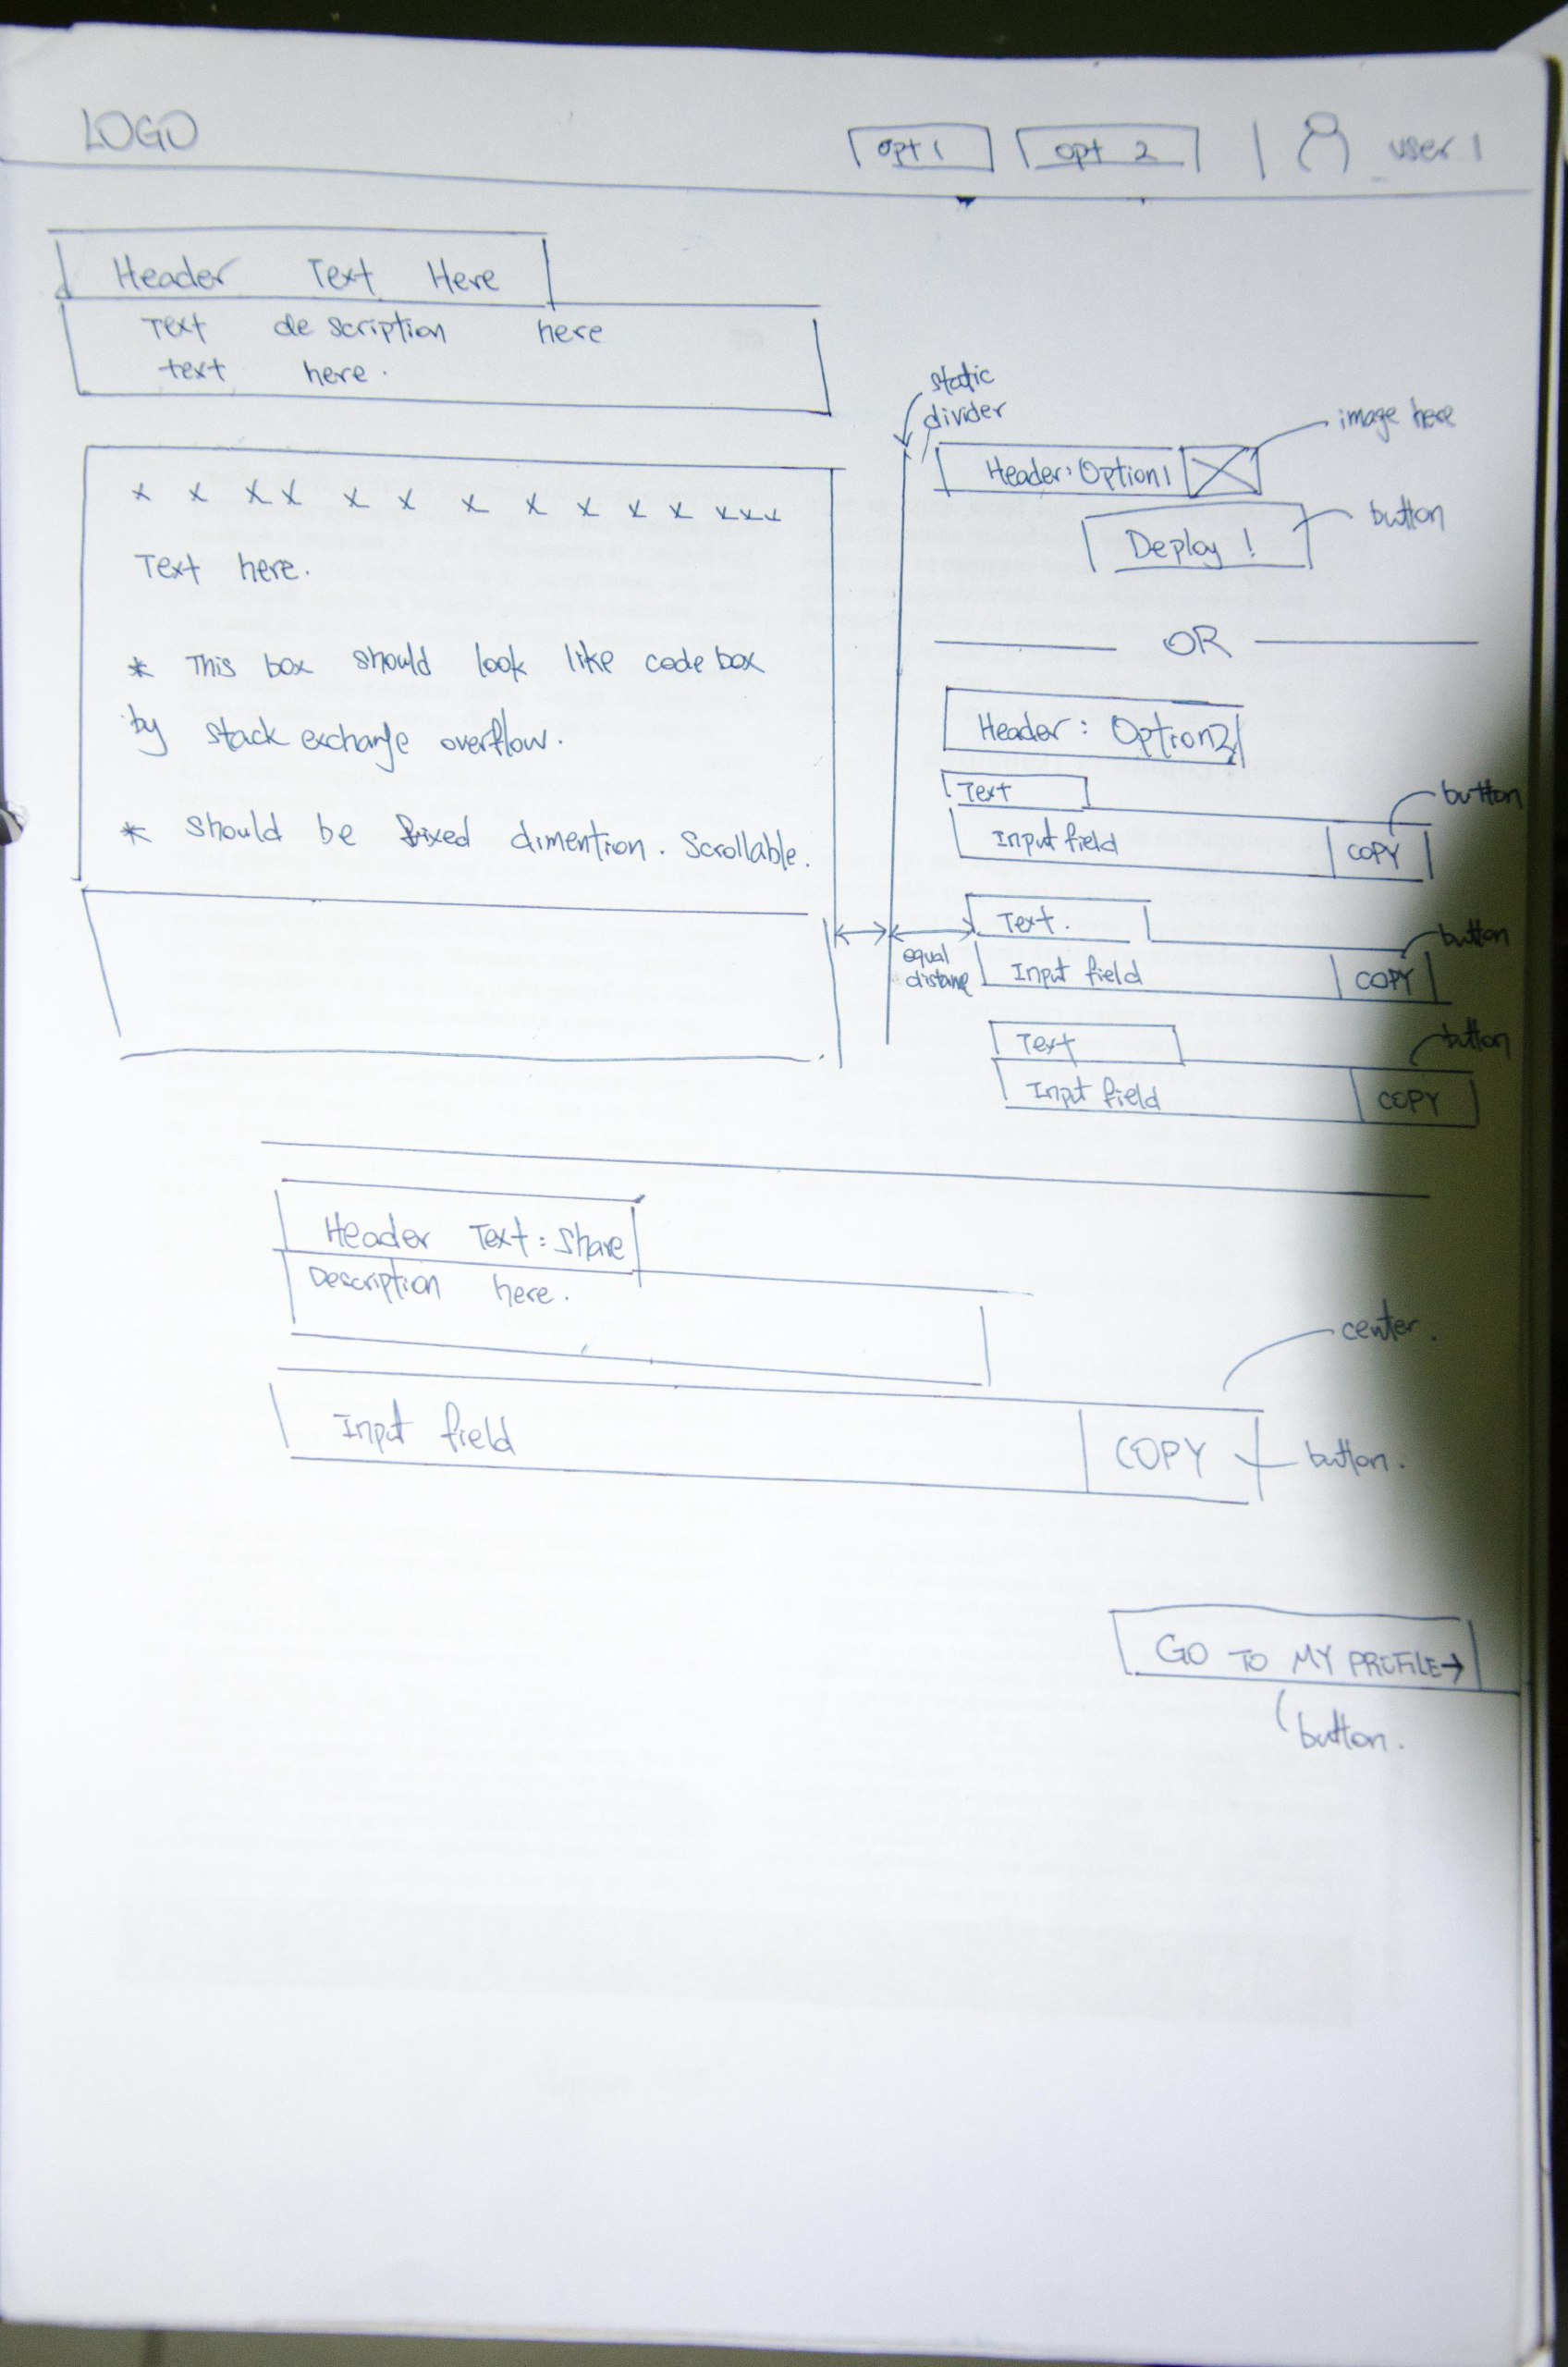 LOGO
opt 1
opt 2
user 1
Header Text Here
Text description here
text here.
x x x x x x x x x x x x x x
Text here.
* This box should look like code box
by stack exchange overflow.
* should be fixed dimention. Scrollable.
static
divider
Header: Option1
image here
Deploy !
button
OR
Header: Option2
Text
Input field
COPY
button
equal
distane
Text.
Input field
COPY
button
Text
Input field
COPY
button
Header Text: Share
Description here.
center.
Input field
COPY
button.
GO TO MY PROFILE→
button.